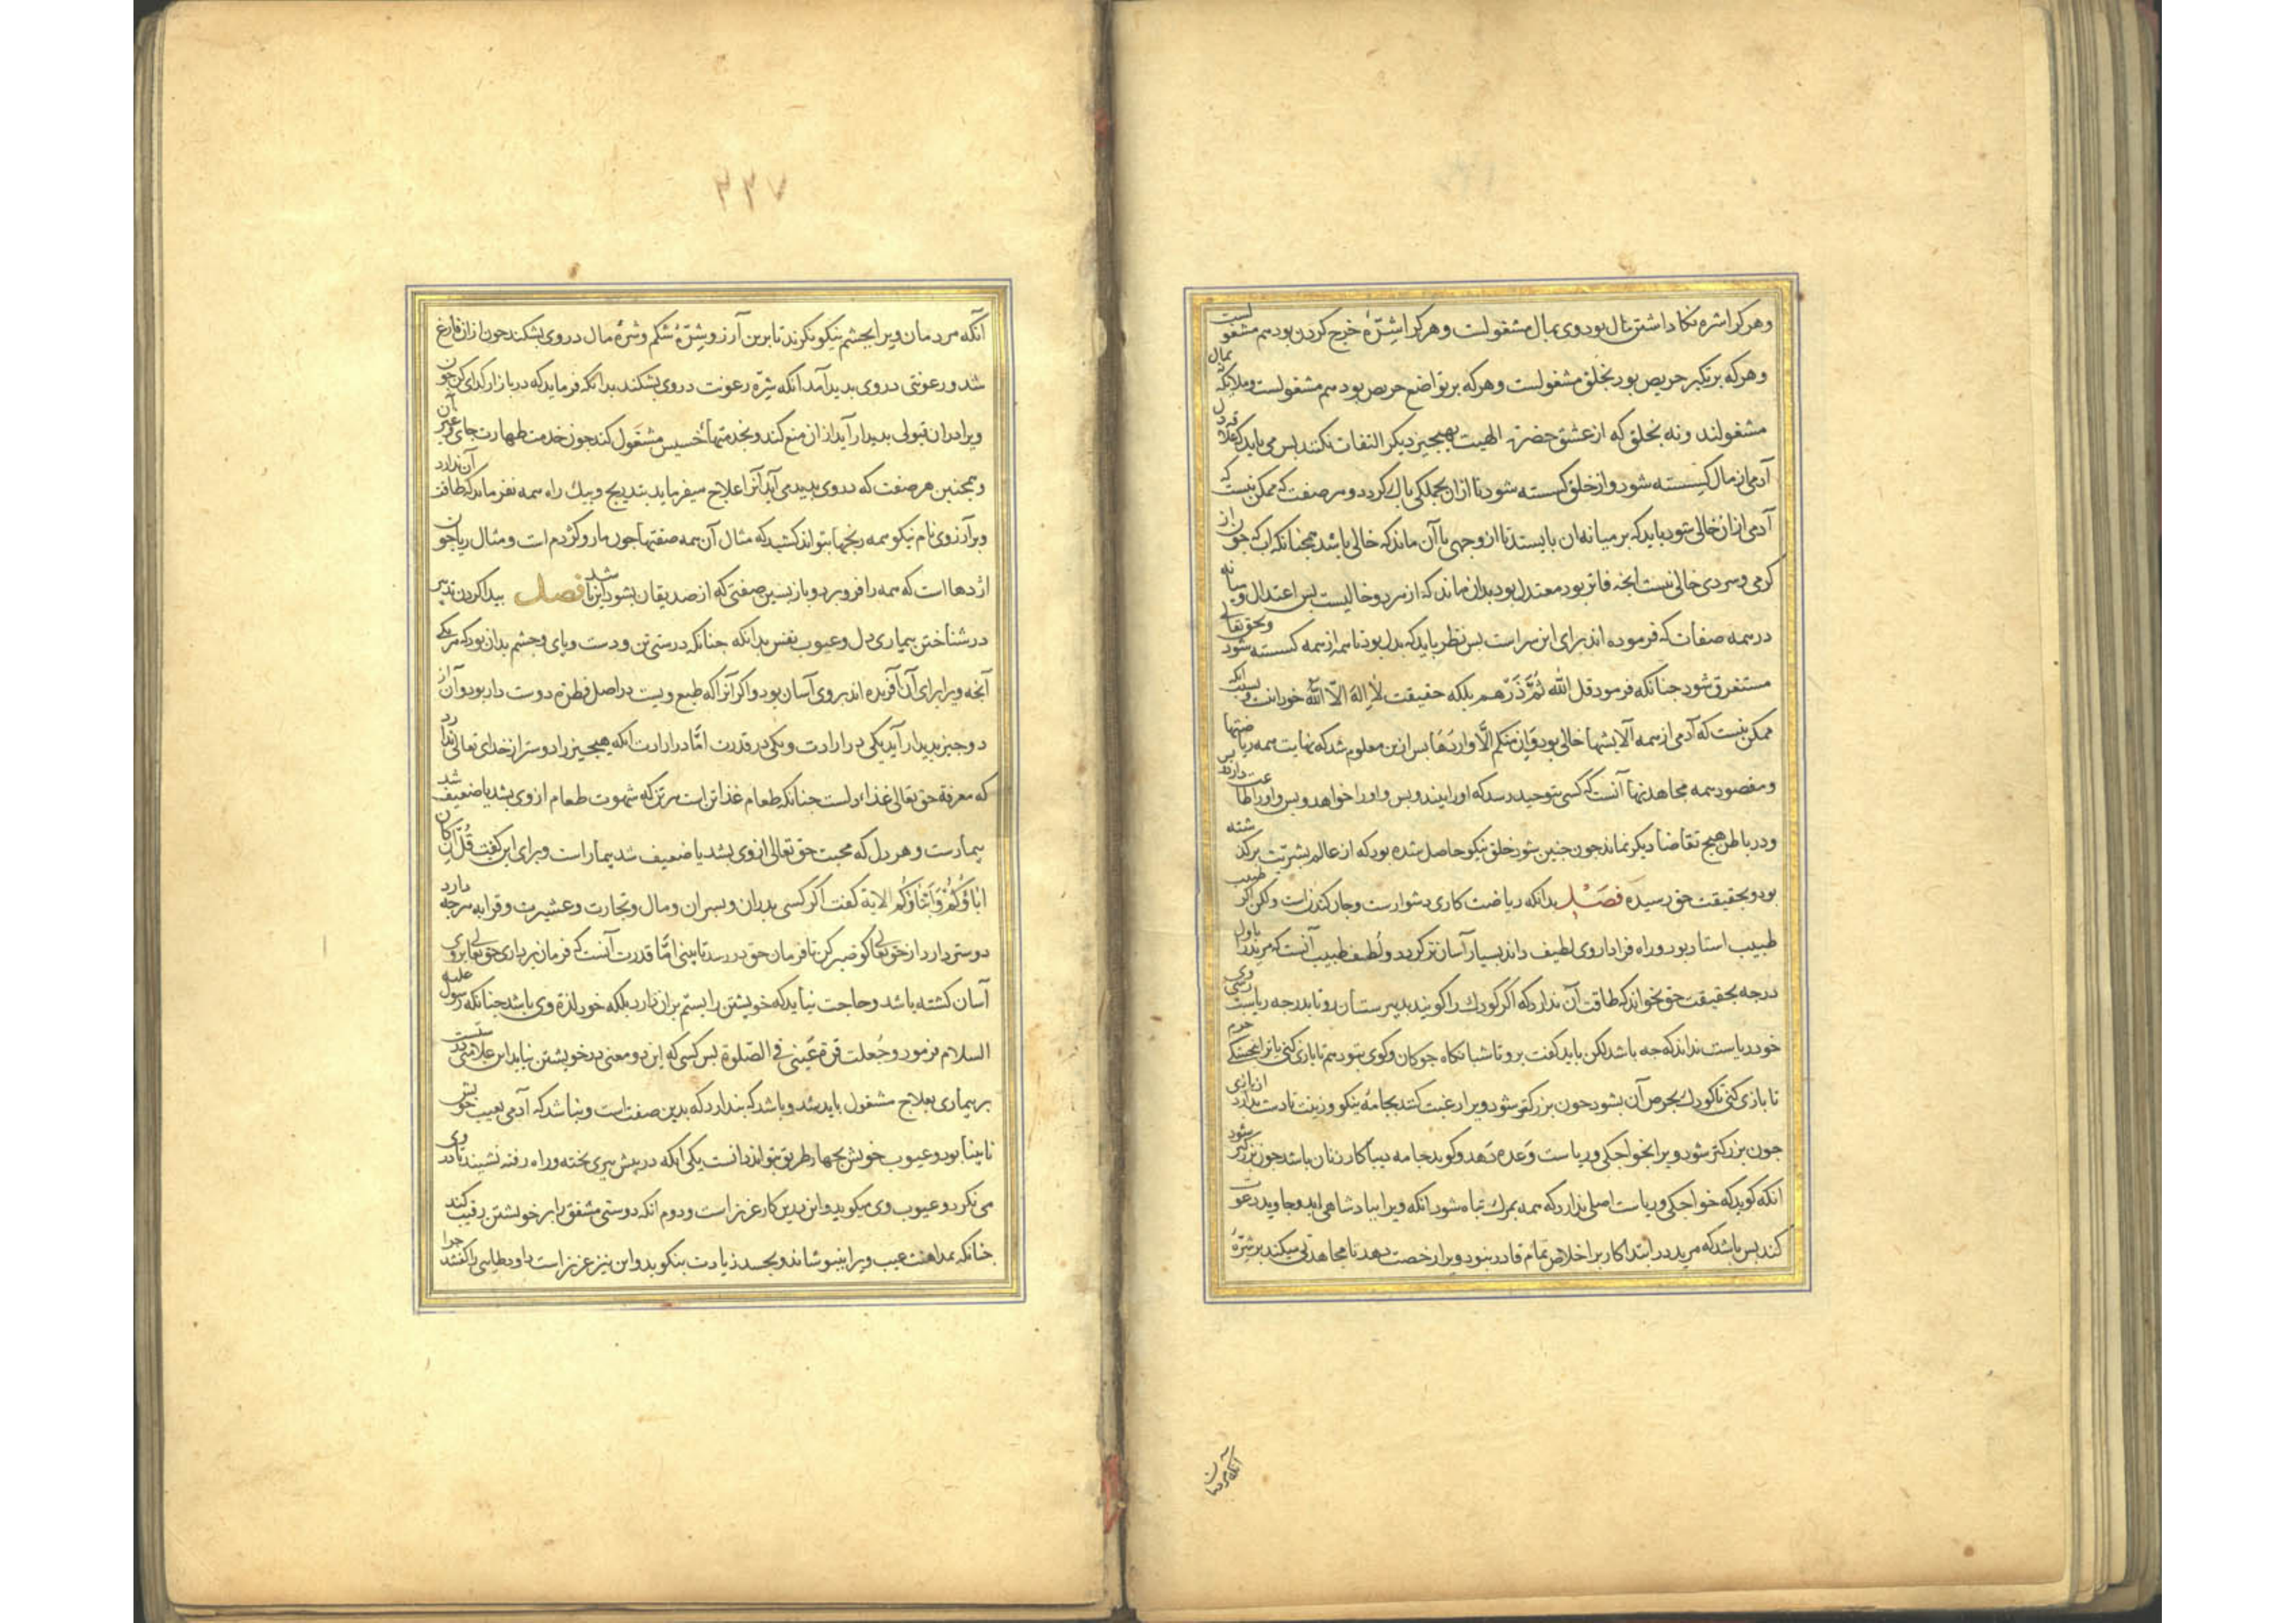 وهر کرا شره نکاه داشتن مال بود وی بمال مشغولست وهر کرا شره خرج کردن بود هم مشغولست
وهر که بر تکبر حریص بود بخلق مشغولست وهر که بر تواضع حریص بود هم مشغولست وملائکه بمال
مشغولند ونه بخلق که از عشق حضرت الهیت بهیچیز دیکر التفات نکنند بس می باید که علاقه دل
آدمی از مال کسسته شود واز خلق کسسته شود تا از ان بجملکی باک کردد وهر صفت که ممکن نیست که
آدمی از ان خالی شود باید که بر میانه ان بایستد تا از وجهی با آن ماند که خالی باشد همجنانکه اب که جون از
کرمی وسردی خالی نیست انجه فاتر بود معتدل بود بدان ماند که از هر دو خالیست بس اعتدال ومیانه
در همه صفات که فرموده اند برای این سر است بس نظر باید که بدل بود تا همه از همه کسسته شود وبحق تعالی
مستغرق شود جنانکه فرمود قل الله ثم ذرهم بلکه حقیقت لا اله الا الله خود اینست وبسبب انکه
ممکن نیست که آدمی از همه آلایشها خالی بود وان منکم الا واردها بس ازین معلوم شد که نهایت همه ریاضتها
ومقصود همه مجاهدتها آنست که کسی بتوحید رسد که اورا بیند وبس واورا خواهد وبس واورا طاعت دارد وبس
ودر باطن هیج تقاضا دیکر نماند جون جنین شود خلق نیکو حاصل شده بود که از عالم بشریت برکذشته
بود وبحقیقت حق رسیده فصل بدانکه ریاضت کاری دشوارست وجان کندن است ولکن اکر طبیب
طبیب استاد بود وراه فرا داروی لطیف داند بسیار آسان تر کردد ولطف طبیب آنست که مرید را باول
درجه بحقیقت حق نخواند که طاقت آن ندارد که اکر کودک را کویند بدبیرستان رو تا بدرجه ریاست رسی وی
خود ریاست نداند که جه باشد لکن باید کفت برو تا شبانکاه جوکان وکوی بتو دهم تا بازی کنی
تا بازی کنی تا کودک بحرص آن بشود جون بزرکتر شود ویرا رغبت کند بجامه نیکو وزینت تا دست بدارد از بازی
جون بزرکتر شود ویرا بخواجکی وریاست وعده دهد وکوید جامه دیبا کار زنان باشد جون بزرکتر شود
انکه کوید که خواجکی وریاست اصلی ندارد که همه بمرک تباه شود انکه ویرا ببادشاهی ابد وجاوید دعوت
کند بس باشد که مرید در ابتدا کار بر اخلاص تمام قادر نبود ویرا رخصت دهد تا مجاهدتی میکند بر شره
آنکه مردمان
آنکه مردمان ویرا بجشم نیکو نکرند تا برین آرزو شره شکم وشره مال در وی بشکند جون از ان فارغ
شد ورعونتی در وی بدید آمد انکه شره رعونت در وی بشکند بدانکه فرماید که در بازار کدای کن جون
ویرا در ان قبولی بدیدار آید از ان منع کند وبخدمتهای خسیس مشغول کند جون خدمت طهارت جای وغیر آن
وهمجنین هر صفت که در وی بدید می آید آنرا علاج میفرماید بتدریج وبیک راه همه نفرماید که طاقت آن ندارد
وبر آرزوی نام نیکو همه رنجها بتواند کشید که مثال آن همه صفتها جون مار وکژدم است ومثال ریا جون
اژدها است که همه را فرو برد وباز بسین صفتی که از صدیقان بشود این باشد فصل بیدا کردن تدبیر
در شناختن بیماری دل وعیوب نفس بدانکه جنانکه درستی تن ودست وبای وجشم بدان بود که هر یکی
آنجه ویرا برای آن آفریده اند بر وی آسان بود واکر آنرا که طبع ویست در اصل فطرة دوست دار بود وآن از
دو جیز بدیدار آید یکی در ارادت ویکی در قدرت اما در ارادت انکه هیجیز را دوستر از خدای تعالی ندارد
که معرفة حق تعالی غذاء دلست جنانکه طعام غذا تن است هر تن که شهوت طعام از وی بشد یا ضعیف شد
بیمارست وهر دل که محبت حق تعالی از وی بشد یا ضعیف شد بیمار است وبرای این کفت قل ان کان
اباؤکم وابناؤکم الایة کفت اکر کسی بدران وبسران ومال وتجارت وعشیرت وقرابه هرجه دارد
دوستر دارد از حق تعالی کو صبر کن تا فرمان حق در رسد تا ببینی اما قدرت آنست که فرمان برداری حق تعالی بر وی
آسان کشته باشد وحاجت نیاید که خویشتن را بستم بران دارد بلکه خود لذة وی باشد جنانکه رسول علیه
السلام فرمود وجعلت قرة عینی فی الصلوة بس کسی که این دو معنی در خویشتن نیابد این علامتی درستست
بر بیماری بعلاج مشغول باید شد وباشد که بندارد که بدین صفت است ونباشد که آدمی بعیب خویش
نابینا بود وعیوب خویش بجهار طریق بتواند دانست یکی انکه در بیش بیری بخته وراه رفته نشیند تا در وی
می نکرد وعیوب وی میکوید واین درین کار عزیز است ودوم انکه دوستی مشفق را بر خویشتن رقیب کند
جنانکه بمداهنت عیب ویرا نبوشاند وبحسد زیادت بنکوید واین نیز عزیز است داود طایی را کفتند جرا